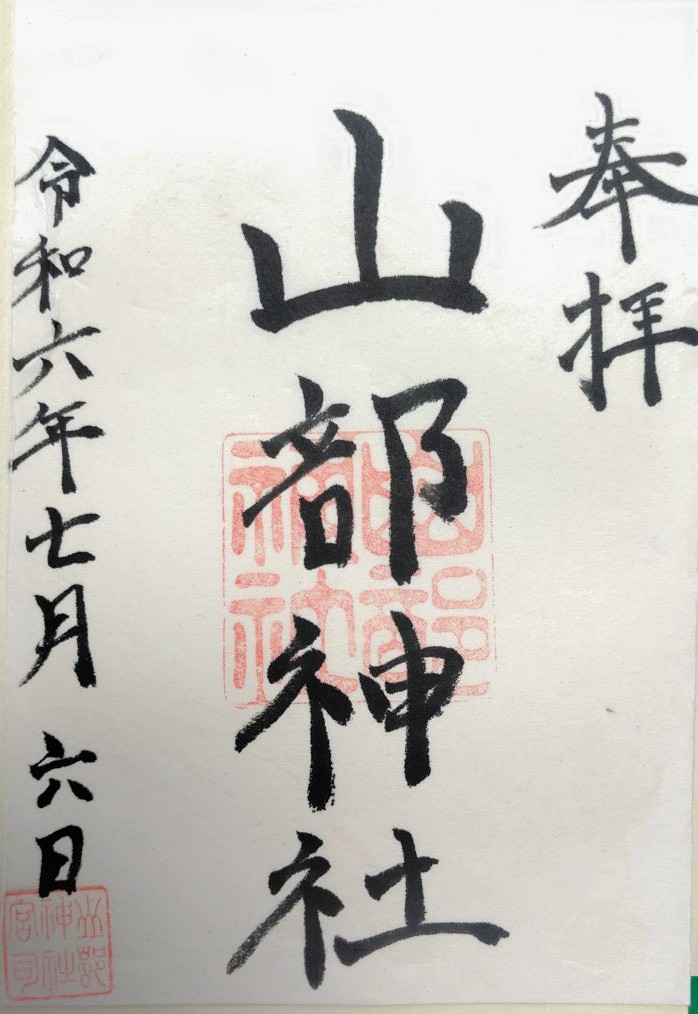 奉拝
山部神社
令和六年七月六日
山部神社
山部神社宮司